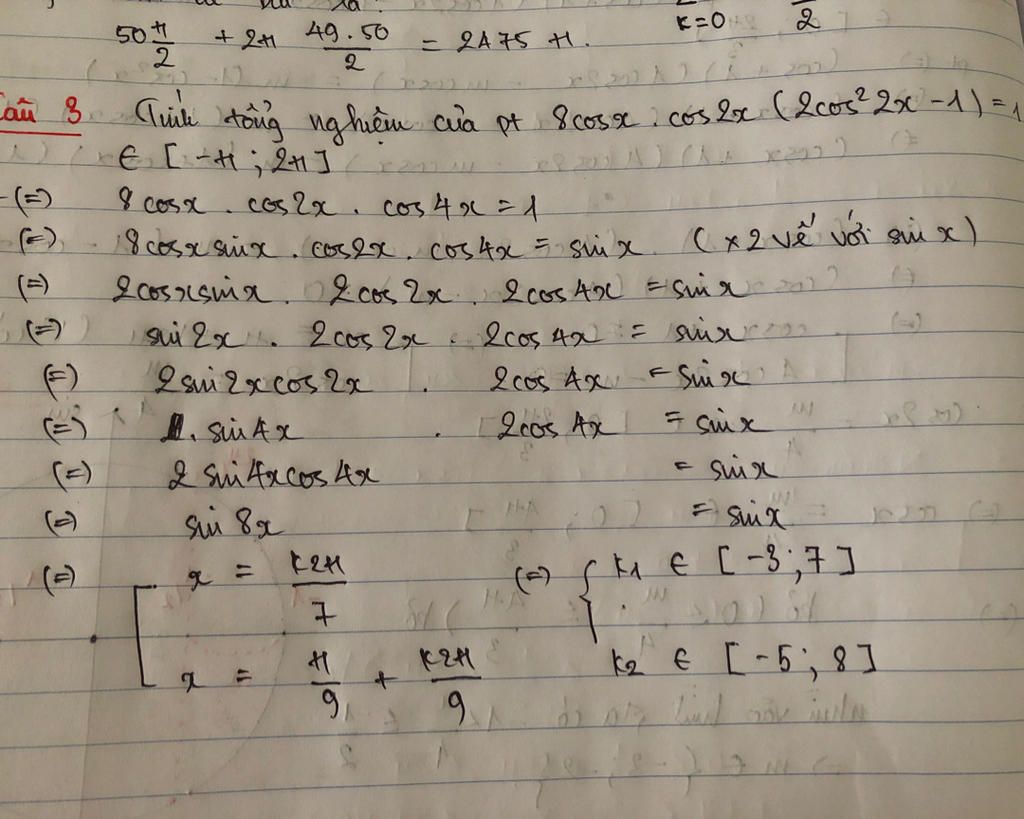 50 π/2 + 2π 49.50/2 = 2475 π.
k=0 2
Câu 3 Tính tổng nghiệm của pt 8cosx . cos2x (2cos² 2x - 1) = 1
∈ [-π ; 2π]
(=) 8cosx . cos2x . cos4x = 1
(=) 8cosx sinx . cos2x . cos4x = sinx (x2 vế với sinx)
(=) 2cosxsinx . 2cos2x . 2cos4x = sinx
(=) sin2x . 2cos2x . 2cos4x = sinx
(=) 2sin2xcos2x . 2cos4x = sinx
(=) 1. sin4x . 2cos4x = sinx
(=) 2 sin4xcos4x = sinx
(=) sin 8x = sinx
(=) [ x = k2π/7 (=) { k1 ∈ [-3;7]
x = π/9 + k2π/9 k2 ∈ [-5; 8]